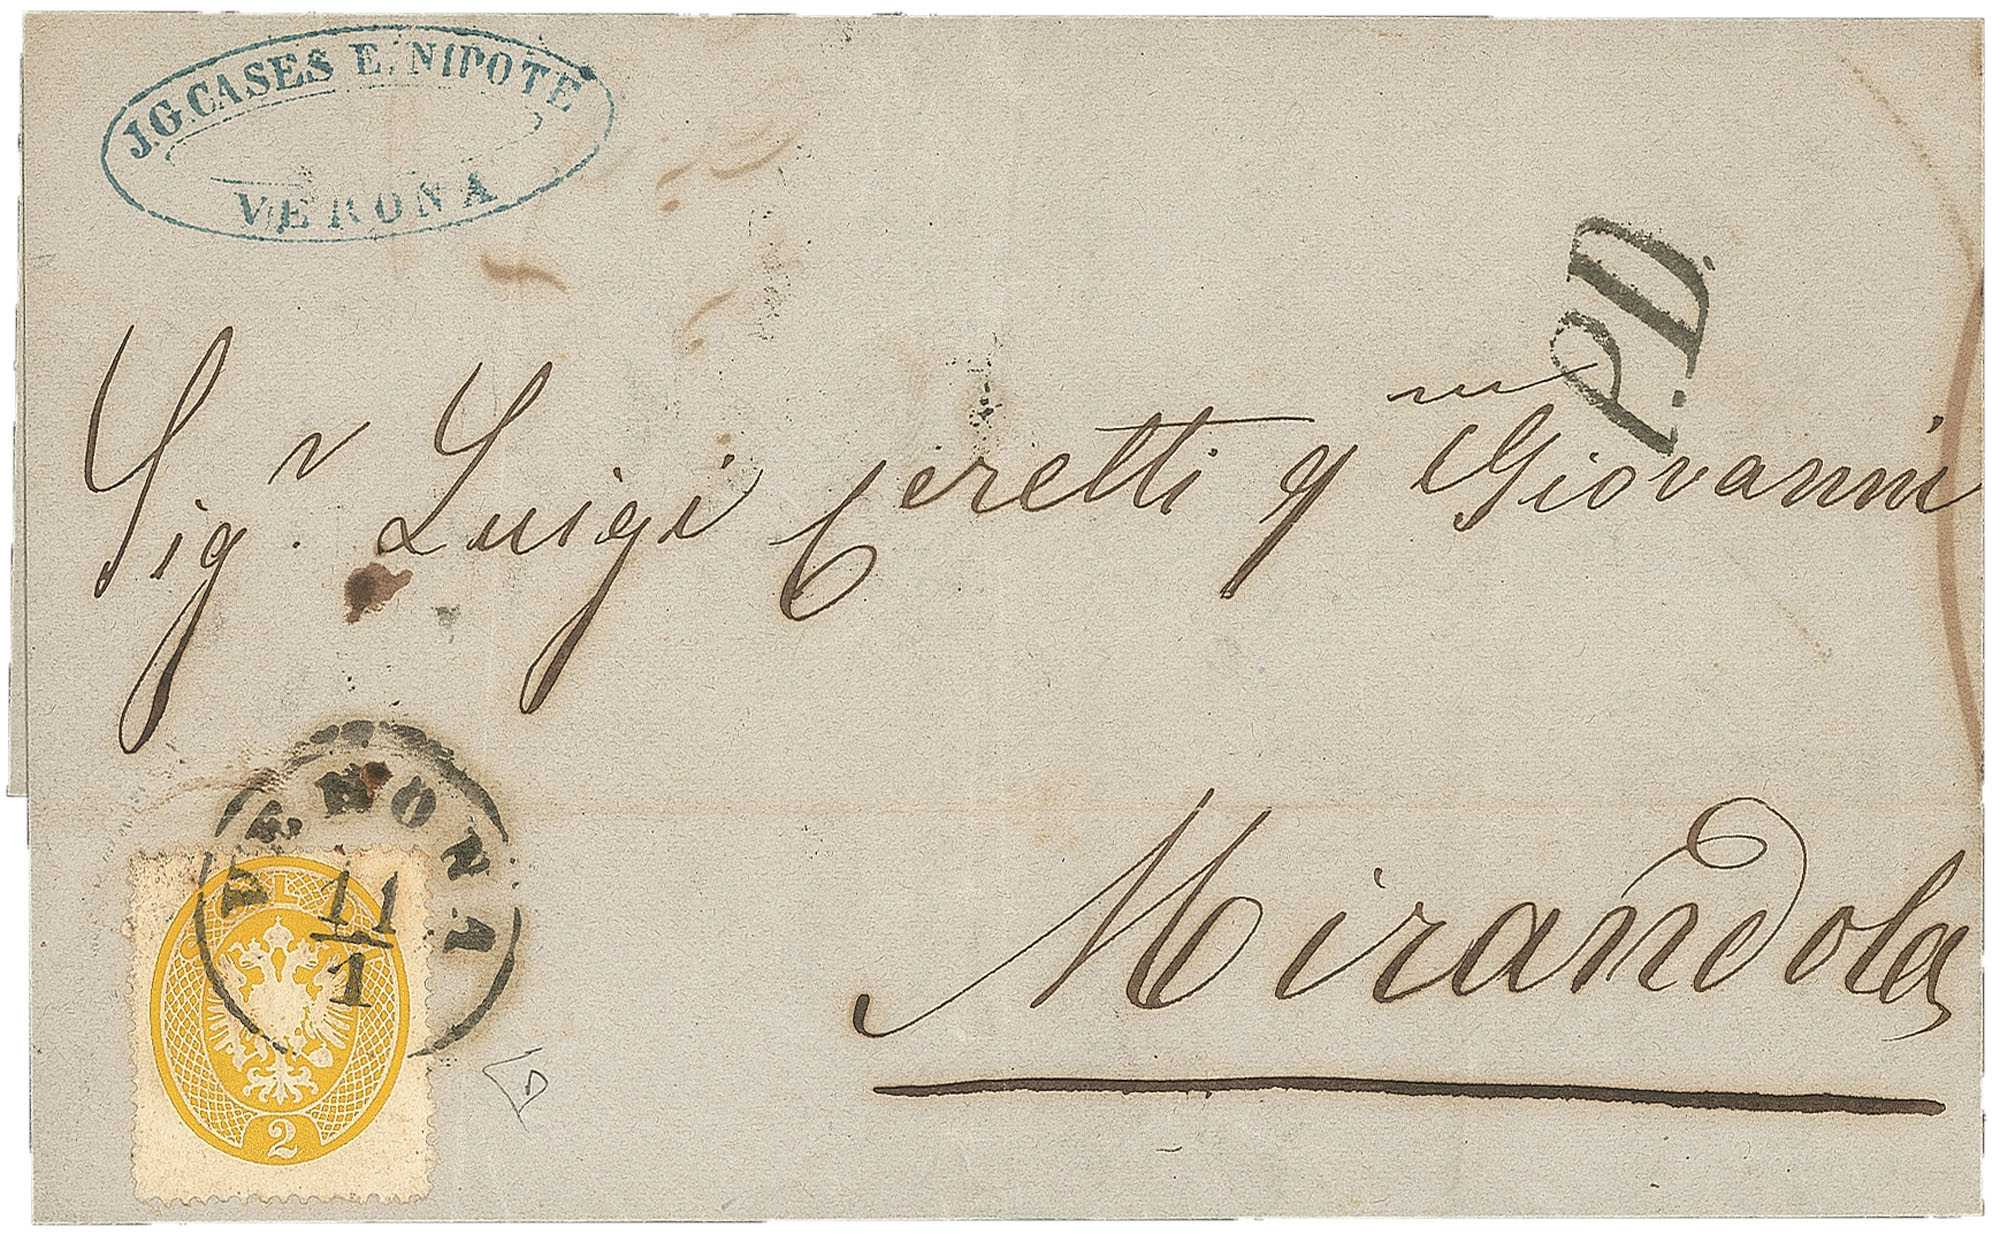 J.G. CASES E. NIPOTE
VERONA
P.D.
Sigr. Luigi Ceretti qm Giovanni
Mirandola
VERONA
11
1
SOLDI
2